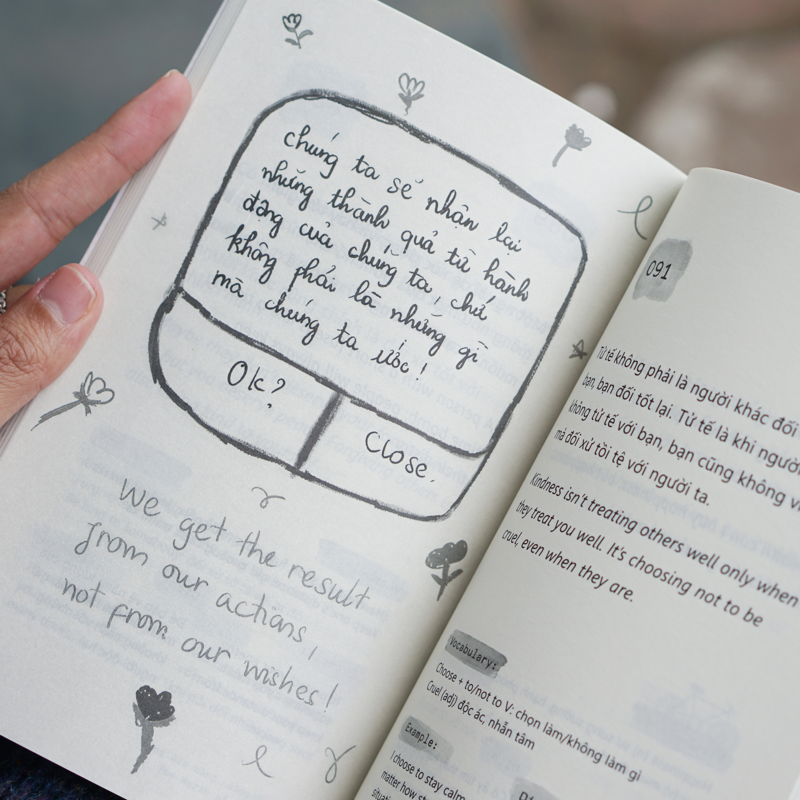 chúng ta sẽ nhận lại
những thành quả từ hành
động của chúng ta, chứ
không phải là những gì
mà chúng ta ước!
Ok?
Close.
We get the result
from our actions,
not from our wishes!
091
Từ tế không phải là người khác đối
bạn, bạn đối tốt lại. Tử tế là khi người
không tử tế với bạn, bạn cũng không vì
mà đối xử tồi tệ với người ta.
Kindness isn't treating others well only when
they treat you well. It's choosing not to be
cruel, even when they are.
Vocabulary:
Choose + to/not to V: chọn làm/không làm gì
Cruel (adj) độc ác, nhẫn tâm
Example:
I choose to stay calm
matter how